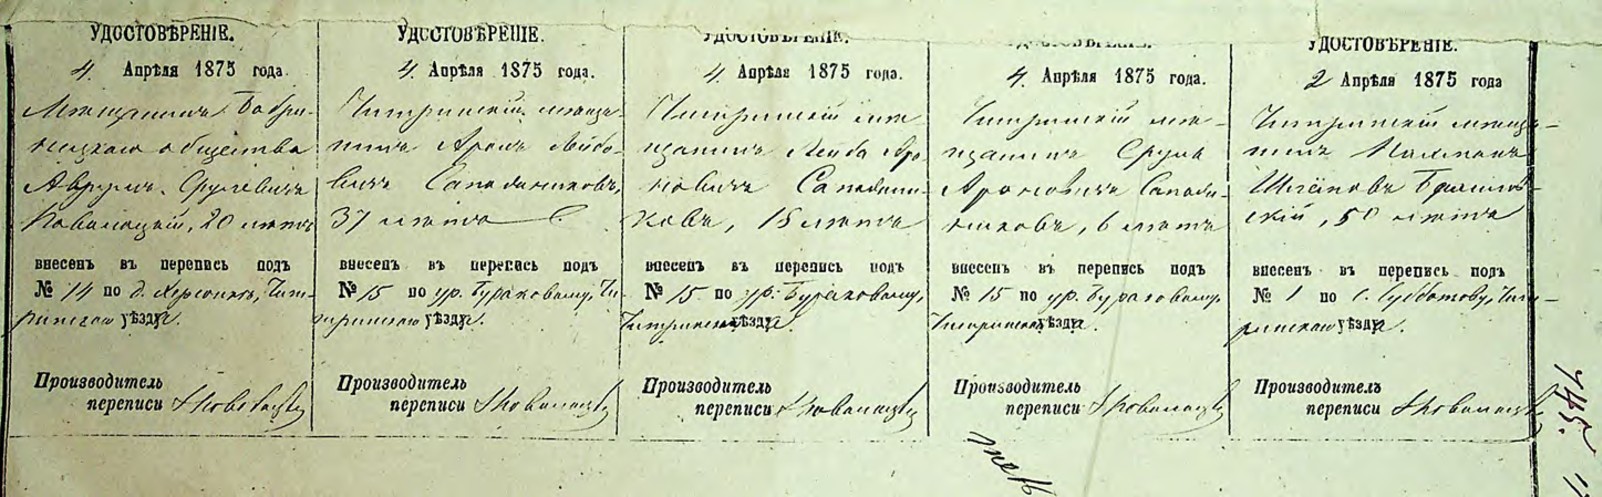 УДОСТОВѢРЕНІЕ.
4. Апрѣля 1875 года.
Мѣщанинъ Бобри-
нецкаго общества
Аврумъ Срулевичъ
20 лѣтъ
внесенъ въ перепись подъ
№ 14 по д. Херсонкѣ, Чиги-
ринскаго уѣзда.
Производитель
переписи
УДОСТОВѢРЕНІЕ.
4. Апрѣля 1875 года.
Чигиринскій мѣща-
нинъ Аронъ Лейбо-
вичъ Сападниковъ,
37 лѣтъ
внесенъ въ перепись подъ
№ 15 по ур. Бураковому, Чи-
гиринскаго уѣзда.
Производитель
переписи
УДОСТОВѢРЕНІЕ.
4. Апрѣля 1875 года.
Чигиринскій мѣ
щанинъ Лейба Аро
новичъ Сападни-
ковъ, 15 лѣтъ
внесенъ въ перепись подъ
№ 15 по ур. Бураковому,
Чигиринскаго уѣзда.
Производитель
переписи
УДОСТОВѢРЕНІЕ.
4. Апрѣля 1875 года.
Чигиринскій мѣ-
щанинъ Сруль
Ароновичъ Сапад-
никовъ, 6 лѣтъ
внесенъ въ перепись подъ
№ 15 по ур. Бураковому,
Чигиринскаго уѣзда.
Производитель
переписи
УДОСТОВѢРЕНІЕ.
2 Апрѣля 1875 года
Чигиринскій мѣща-
нинъ Нахманъ
скій, 50 лѣтъ
внесенъ въ перепись подъ
№ 1 по с. Субботову, Чиги-
ринскаго уѣзда.
Производитель
переписи